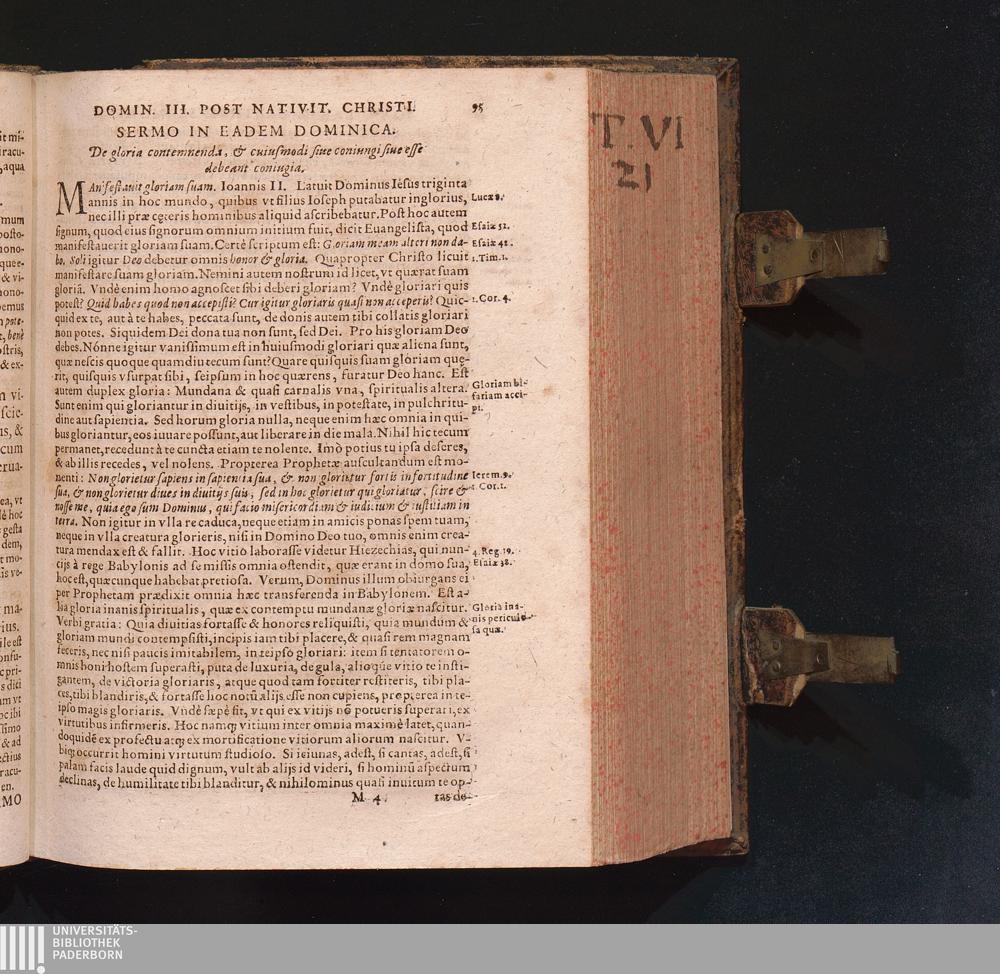 DOMIN. III. POST NATIVIT. CHRISTI. 95
SERMO IN EADEM DOMINICA.
De gloria contemnenda, & cuiusmodi siue coniungi siue esse
debeant coniugia.
MAnifestauit gloriam suam. Ioannis II. Latuit Dominus Iesus triginta
annis in hoc mundo, quibus vt filius Ioseph putabatur inglorius, Lucæ 8.
nec illi præ ceteris hominibus aliquid ascribebatur. Post hoc autem
signum, quod eius signorum omnium initium fuit, dicit Euangelista, quod Esaiæ 52.
manifestauerit gloriam suam. Certè scriptum est: Gloriam meam alteri non da- Esaiæ 42.
bo. Soli igitur Deo debetur omnis honor & gloria. Quapropter Christo licuit 1. Tim. 1.
manifestare suam gloriam. Nemini autem nostrum id licet, vt quærat suam
gloriã. Vndè enim homo agnoscet sibi deberi gloriam? Vndè gloriari quis
potest? Quid habes quod non accepisti? Cur igitur gloriaris quasi non acceperis? Quic- 1. Cor. 4.
quid ex te, aut à te habes, peccata sunt, de donis autem tibi collatis gloriari
non potes. Siquidem Dei dona tua non sunt, sed Dei. Pro his gloriam Deo
debes. Nónne igitur vanissimum est in huiusmodi gloriari quæ aliena sunt,
quæ nescis quoque quamdiu tecum sunt? Quare quisquis suam gloriam quę-
rit, quisquis vsurpat sibi, seipsum in hoc quærens, furatur Deo hanc. Est
autem duplex gloria: Mundana & quasi carnalis vna, spiritualis altera. Gloriam bi-
Sunt enim qui gloriantur in diuitijs, in vestibus, in potestate, in pulchritu- fariam acci-
dine aut sapientia. Sed horum gloria nulla, neque enim hæc omnia in qui- pi.
bus gloriantur, eos iuuare possunt, aut liberare in die mala. Nihil hic tecum
permanet, recedunt à te cuncta etiam te nolente. Imò potius tu ipsa deseres,
& ab illis recedes, vel nolens. Propterea Prophetæ auscultandum est mo-
nenti: Non glorietur sapiens in sapientia sua, & non glorietur fortis in fortitudine Ierem. 9.
sua, & non glorietur diues in diuitijs suis, sed in hoc glorietur qui gloriatur, scire & 1. Cor. 1.
nosse me, quia ego sum Dominus, qui facio misericordiam & iudicium & iustitiam in
terra. Non igitur in vlla re caduca, neque etiam in amicis ponas spem tuam,
neque in vlla creatura glorieris, nisi in Domino Deo tuo, omnis enim crea-
tura mendax est & fallit. Hoc vitio laborasse videtur Hiezechias, qui nun- 4. Reg. 19.
cijs à rege Babylonis ad se missis omnia ostendit, quæ erant in domo sua, Esaiæ 38.
hoc est, quæcunque habebat pretiosa. Verum, Dominus illum obiurgans ei
per Prophetam prædixit omnia hæc transferenda in Babylonem. Est a-
lia gloria inanis spiritualis, quæ ex contemptu mundanæ gloriæ nascitur. Gloria ina-
Verbi gratia: Quia diuitias fortasse & honores reliquisti, quia mundum & nis periculo-
gloriam mundi contempsisti, incipis iam tibi placere, & quasi rem magnam sa quæ.
feceris, nec nisi paucis imitabilem, in teipso gloriari: item si tentatorem o-
mnis boni hostem superasti, puta de luxuria, de gula, alioque vitio te insti-
gantem, de victoria gloriaris, atque quod tam fortiter restiteris, tibi pla-
ces, tibi blandiris, & fortasse hoc notũ alijs esse non cupiens, propterea in te-
ipso magis gloriaris. Vndè sæpè fit, vt qui ex vitijs nõ potueris superari, ex
virtutibus infirmeris. Hoc namq; vitium inter omnia maximè latet, quan-
doquidẽ ex profectu atq; ex mortificatione vitiorum aliorum nascitur. V-
biq; occurrit homini virtutum studioso. Si ieiunas, adest, si cantas, adest, si
palam facis laude quid dignum, vult ab alijs id videri, si hominũ aspectum
declinas, de humilitate tibi blanditur, & nihilominus quasi inuitum te op-
M 4
T. VI
21
UNIVERSITÄTS-
BIBLIOTHEK
PADERBORN